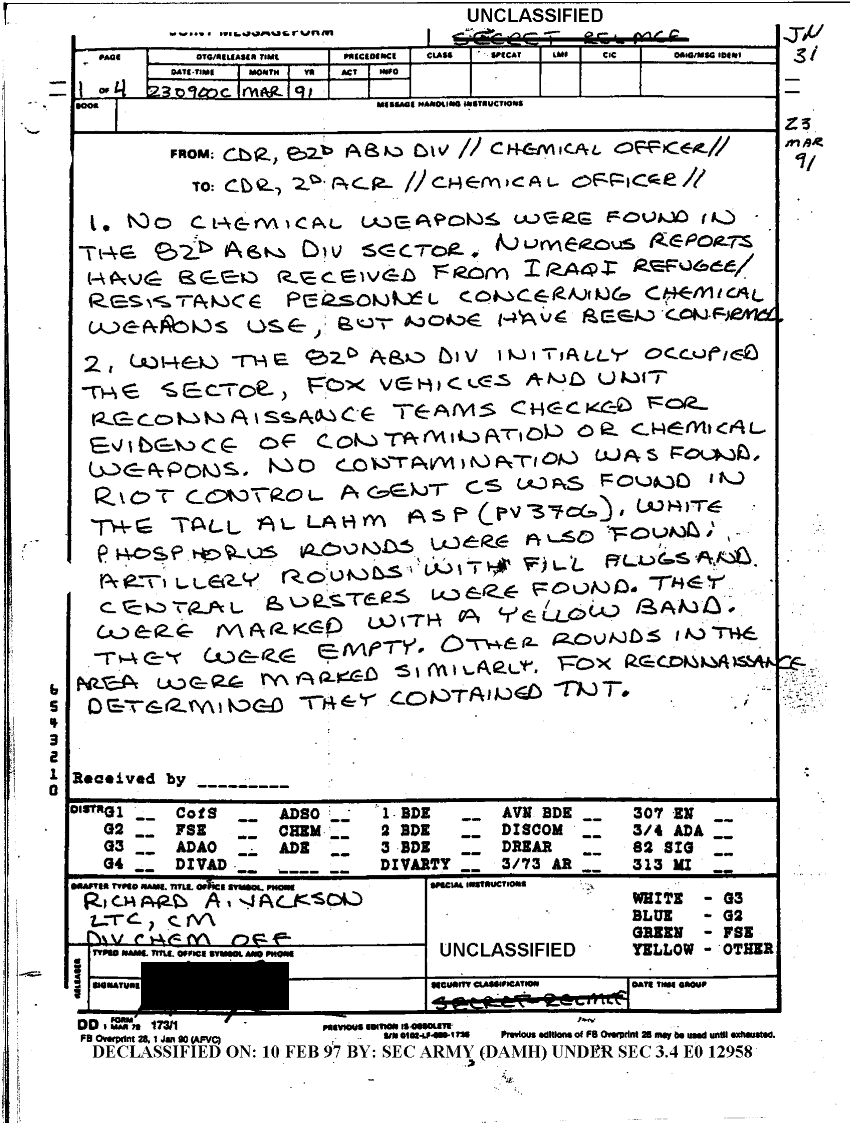 UNCLASSIFIED
JOINT MESSAGEFORM
SECRET RELMCE
JN
31
PAGE
DTG/RELEASER TIME
PRECEDENCE
CLASS
SPECAT
LMF
CIC
ORIG/MSG IDENT
DATE-TIME
MONTH
YR
ACT
INFO
1 OF 4
230900C
MAR
91
BOOK
MESSAGE HANDLING INSTRUCTIONS
23
MAR
91
FROM: CDR, 82D ABN DIV // CHEMICAL OFFICER//
TO: CDR, 2D ACR // CHEMICAL OFFICER//
1. NO CHEMICAL WEAPONS WERE FOUND IN
THE 82D ABN DIV SECTOR. NUMEROUS REPORTS
HAVE BEEN RECEIVED FROM IRAQI REFUGEE/
RESISTANCE PERSONNEL CONCERNING CHEMICAL
WEAPONS USE, BUT NONE HAVE BEEN CONFIRMED.
2. WHEN THE 82D ABN DIV INITIALLY OCCUPIED
THE SECTOR, FOX VEHICLES AND UNIT
RECONNAISSANCE TEAMS CHECKED FOR
EVIDENCE OF CONTAMINATION OR CHEMICAL
WEAPONS. NO CONTAMINATION WAS FOUND.
RIOT CONTROL AGENT CS WAS FOUND IN
THE TALL AL LAHM ASP (PV3706). WHITE
PHOSPHORUS ROUNDS WERE ALSO FOUND;
ARTILLERY ROUNDS WITH FILL PLUGS AND
CENTRAL BURSTERS WERE FOUND. THEY
WERE MARKED WITH A YELLOW BAND.
THEY WERE EMPTY. OTHER ROUNDS IN THE
AREA WERE MARKED SIMILARLY. FOX RECONNAISSANCE
DETERMINED THEY CONTAINED TNT.
6
5
4
3
2
1
0
Received by _________
DISTR G1 __ CofS __ ADSO __ 1 BDE __ AVN BDE __ 307 EN __
G2 __ FSE __ CHEM __ 2 BDE __ DISCOM __ 3/4 ADA __
G3 __ ADAO __ ADE __ 3 BDE __ DREAR __ 82 SIG __
G4 __ DIVAD __ ____ __ DIVARTY __ 3/73 AR __ 313 MI __
DRAFTER TYPED NAME, TITLE, OFFICE SYMBOL, PHONE
RICHARD A. JACKSON
LTC, CM
DIV CHEM OFF
SPECIAL INSTRUCTIONS
WHITE - G3
BLUE - G2
GREEN - FSE
YELLOW - OTHER
UNCLASSIFIED
RELEASER
TYPED NAME, TITLE, OFFICE SYMBOL AND PHONE
SIGNATURE
SECURITY CLASSIFICATION
SECRET RELMCE
DATE TIME GROUP
DD FORM 1 MAR 79 173/1
PREVIOUS EDITION IS OBSOLETE
FB Overprint 28, 1 Jan 90 (AFVC)
Previous editions of FB Overprint 28 may be used until exhausted.
DECLASSIFIED ON: 10 FEB 97 BY: SEC ARMY (DAMH) UNDER SEC 3.4 E0 12958